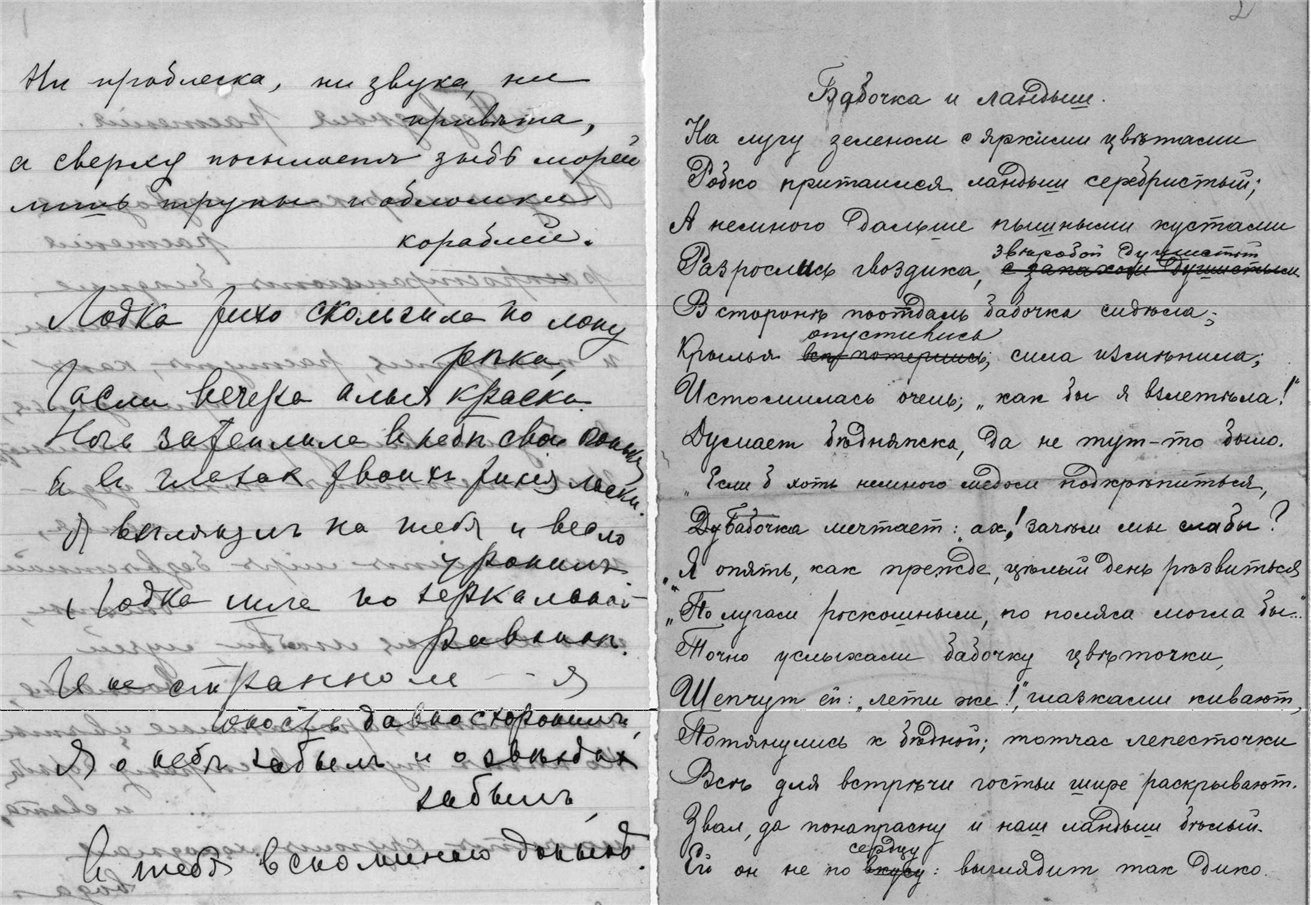 Ни проблеска, ни звука, ни
привѣта,
а сверху посылаетъ зыбь морей
лишь трупы и обломки
кораблей.
Лодка тихо скользила по лону
рѣки,
Гасли вечера алыя краски
Ночь затеплила въ небѣ свои
а въ глазах твоихъ тихія ласки.
Я взглянулъ на тебя и весло
уронилъ
Лодка шла по зеркальной
равнинѣ.
И не странно ли - я
юность давно схоронилъ,
Я о небѣ забылъ и о звѣздах
забылъ,
А тебя вспоминаю донынѣ.
2
Бабочка и ландыш.
На лугу зеленом с яркими цвѣтами
Робко притаился ландыш серебристый;
А немного дальше пышными кустами
звѣробой душистый
Разрослись гвоздика, с запахом душистым
В сторонѣ поотдаль бабочка сидѣла;
опустились
Крылья сила измѣнила;
Истомилась очень; „как бы я взлетѣла!"
Думает бѣдняжка, да не тут-то было.
„Если б хоть немного медом подкрѣпиться,
Бабочка мечтает: ах! зачѣм мы слабы?
„Я опять, как прежде, цѣлый день рѣзвиться
„По лугам роскошным, по полям могла бы..."
Точно услыхали бабочку цвѣточки,
Шепчут ей: „лети же!", глазками кивают,
Потянулись к бѣдной; тотчас лепесточки
Всѣ для встрѣчи гостьи шире раскрывают.
Звал, да понапрасну и наш ландыш бѣлый.
сердцу
Ей он не по вкусу: выглядит так дико.